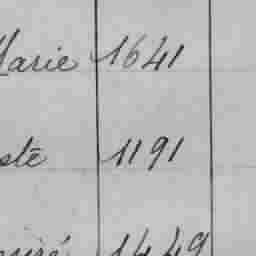 Marie 1641
sté 1191
1449